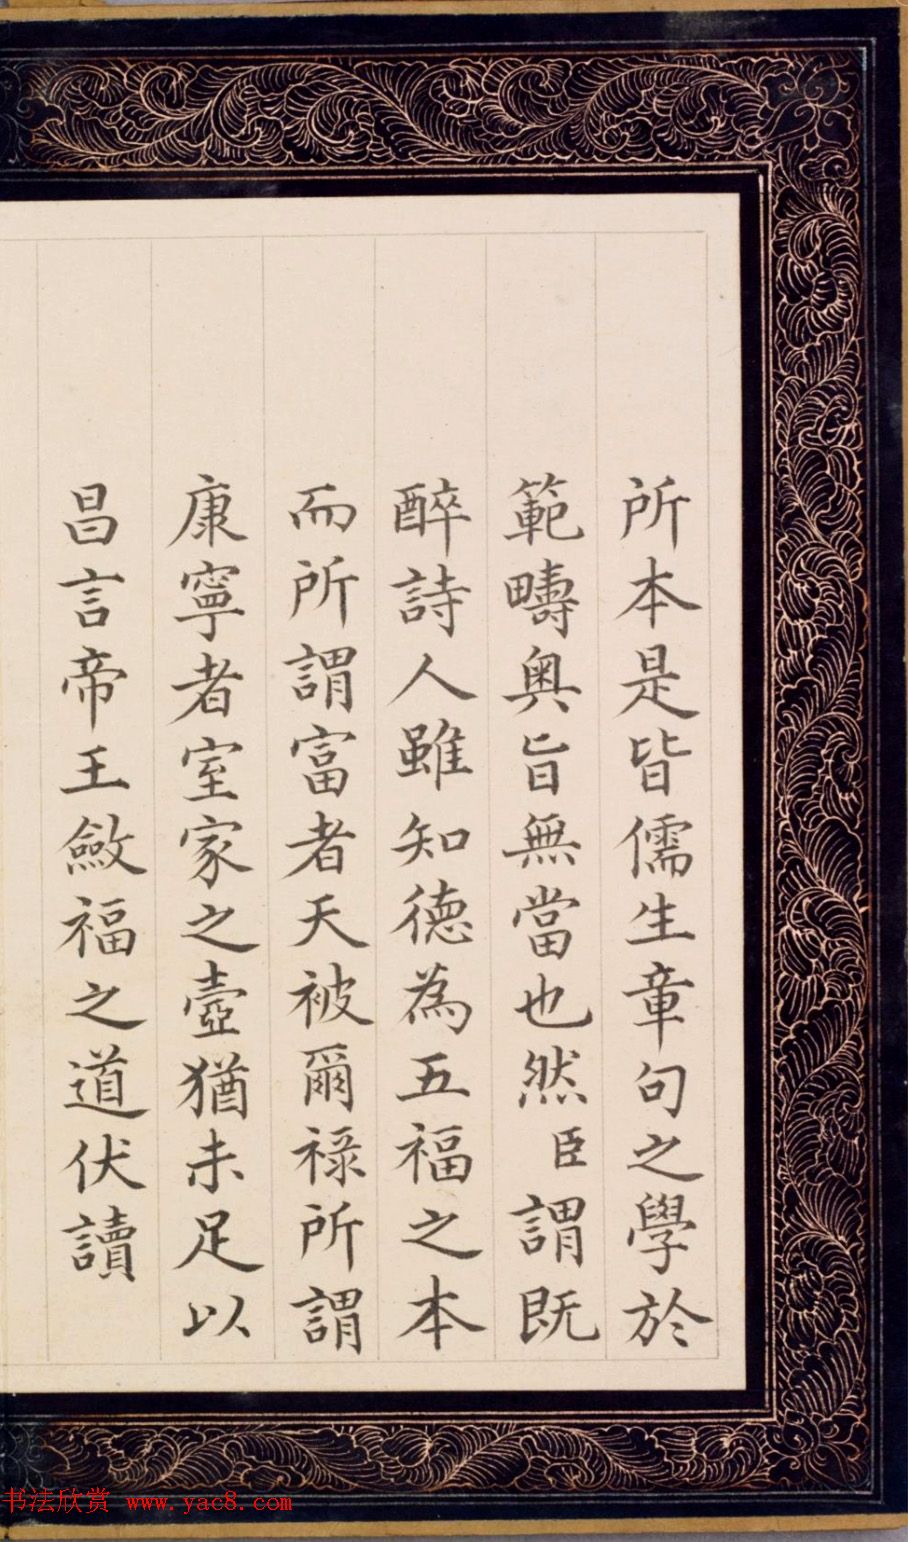 所本是皆儒生章句之學於
範疇奧旨無當也然臣謂既
醉詩人雖知德為五福之本
而所謂富者天被爾祿所謂
康寧者室家之壼猶未足以
昌言帝王斂福之道伏讀
书法欣赏 www.yac8.com